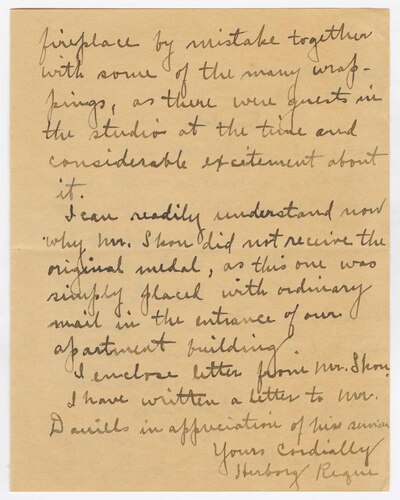 fireplace by mistake together
with some of the many wrap-
pings, as there were guests in
the studio at the time and
considerable excitement about
it.
I can readily understand now
why Mr. Skou did not receive the
original medal, as this one was
simply placed with ordinary
mail in the entrance of our
apartment building
I enclose letter from Mr. Skou
I have written a letter to Mr.
Daniels in appreciation of his service
Yours Cordially
Herborg Reque